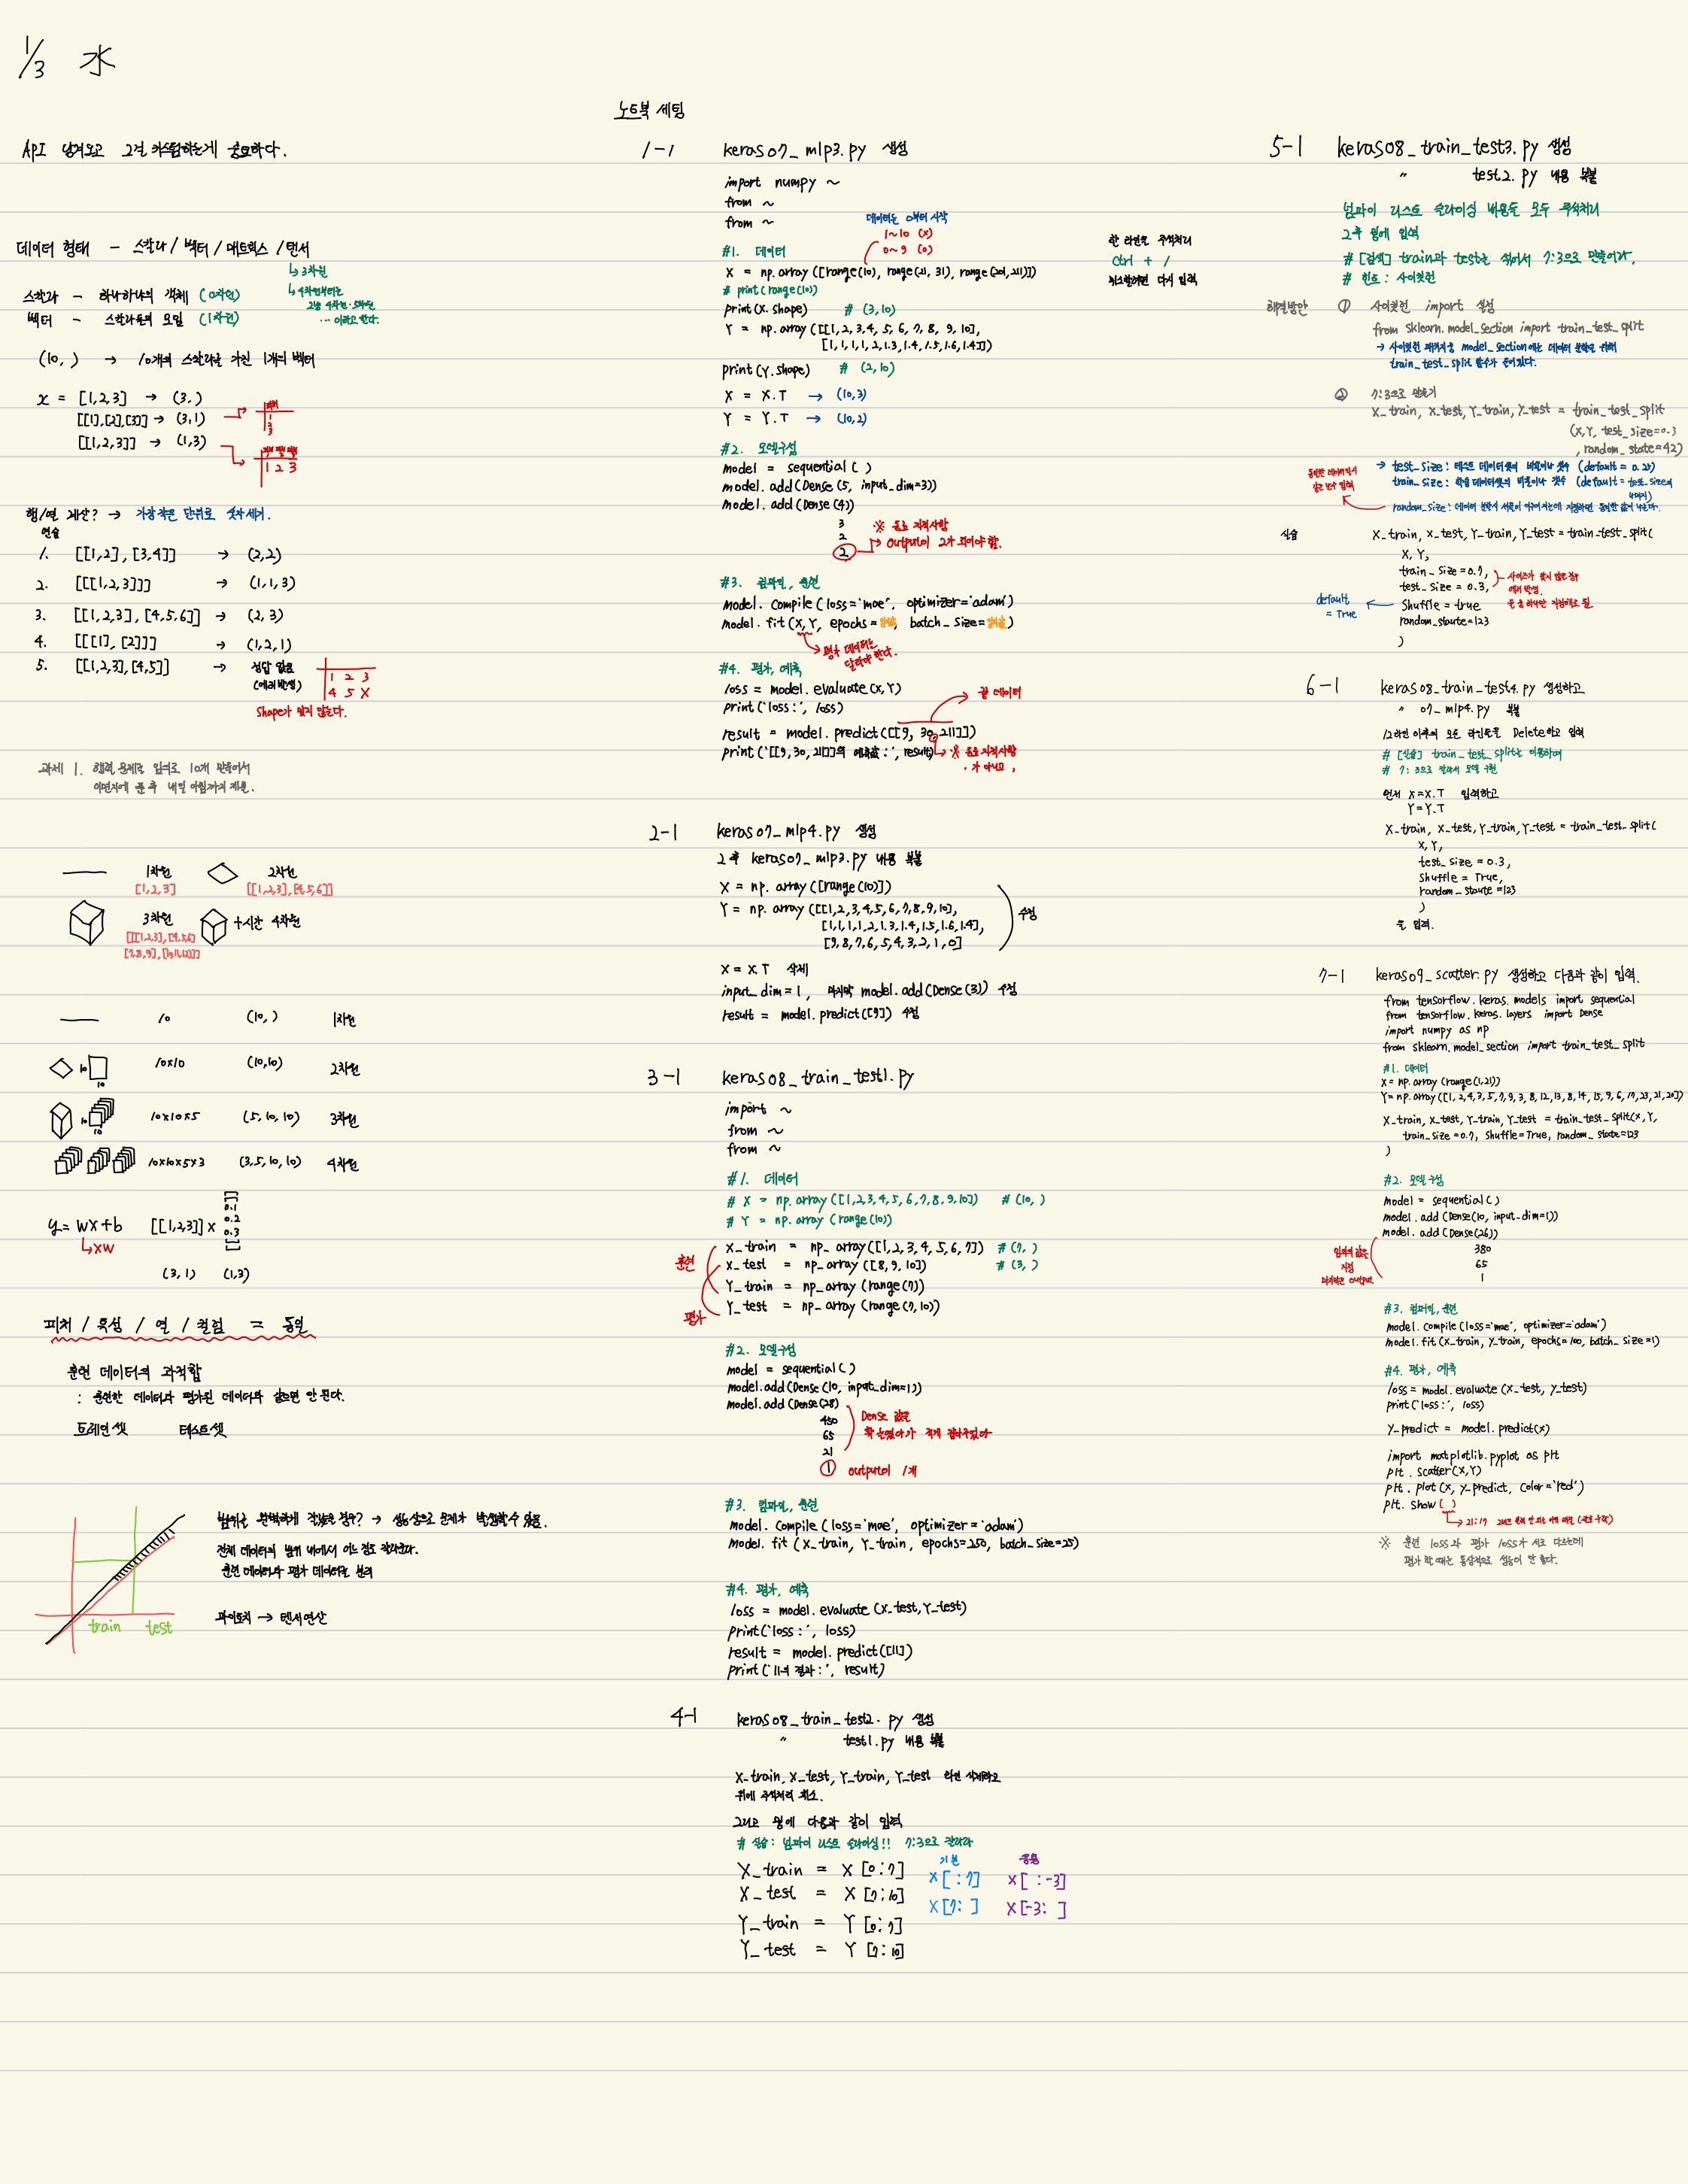 1/3 水
API 당겨오고 그걸 커스텀하는게 중요하다.
데이터 형태 - 스칼라 / 벡터 / 매트릭스 / 텐서
↳ 3차원
↳ 4차원부터는
2냥 4차원·5차원
… 이라고 한다.
스칼라 - 하나하나의 객체 (0차원)
벡터 - 스칼라들의 모임 (1차원)
(10, ) → 10개의 스칼라를 가진 1개의 벡터
x = [1,2,3] → (3,)
[[1],[2],[3]] → (3,1)
1
2
3
[[1,2,3]] → (1,3)
1 2 3
행/열 계산? → 가장작은 단위로 숫자세기.
연습
1. [[1,2],[3,4]] → (2,2)
2. [[[1,2,3]]] → (1,1,3)
3. [[1,2,3],[4,5,6]] → (2,3)
4. [[[1],[2]]] → (1,2,1)
5. [[1,2,3],[4,5]] → 정답 없음
(에러발생)
1 2 3
4 5 X
Shape가 맞지 않는다.
과제 1. 행렬 문제를 임의로 10개 만들어서
이면지에 푼 후 내일 아침까지 제출.
1차원
[1,2,3]
2차원
[[1,2,3],[4,5,6]]
3차원
[[[1,2,3],[4,5,6]
[7,8,9],[10,11,12]]]
+시간 4차원
10 (10, ) 1차원
10 10 10x10 (10,10) 2차원
10 10 10x10x5 (5,10,10) 3차원
10x10x5x3 (3,5,10,10) 4차원
y = wx+b [[1,2,3]] x
[[
0.1
0.2
0.3
]]
↳xw
(3,1) (1,3)
피처 / 특성 / 열 / 컬럼 = 동일
훈련 데이터의 과적합
: 훈련한 데이터와 평가된 데이터와 같으면 안 된다.
트레인 셋 테스트셋
범위로 완벽하게 잘랐을 경우? → 성능상으로 문제가 발생할수 있음.
전체 데이터의 범위 내에서 어느 정도 잘라준다.
훈련 데이터와 평가 데이터를 분리
파이토치 → 텐서연산
train test
노트북 세팅
1-1 keras07_mlp3.py 생성
import numpy ~
from ~
from ~
데이터는 0부터 시작
1~10 (x)
0~9 (o)
#1. 데이터
X = np.array([range(10), range(21, 31), range(201,211)])
# print(range(10))
print(X.shape) # (3,10)
Y = np.array([[1,2,3,4,5,6,7,8,9,10],
[1,1,1,1,2,1.3,1.4,1.5,1.6,1.4]])
print(Y.shape) # (2,10)
X = X.T → (10,3)
Y = Y.T → (10,2)
한 라인을 주석처리
Ctrl + /
취소할려면 다시 입력
#2. 모델구성
model = sequential( )
model.add(Dense(5, input_dim=3))
model.add(Dense(4))
3
2
2
※ 중요 지적사항
→ output이 2가 되어야 함.
#3. 컴파일, 훈련
Model.compile(loss='mae', optimizer='adam')
model.fit(X,Y, epochs= , batch_size= )
평가 데이터는
달라야 한다.
#4. 평가, 예측
loss = model.evaluate(X,Y)
print('loss:', loss)
끝 데이터
result = model.predict([[9, 30, 211]])
print('[[9, 30, 211]]의 예측값:', result)
※ 중요 지적사항
. 가 아니고 ,
2-1 keras07_mlp4.py 생성
그 후 keras07_mlp3.py 내용 복붙
X = np.array([range(10)])
Y = np.array([[1,2,3,4,5,6,7,8,9,10],
[1,1,1,1,2,1.3,1.4,1.5,1.6,1.4],
[9,8,7,6,5,4,3,2,1,0]
수정
X = X.T 삭제
input_dim=1, 마지막 model.add(Dense(3)) 수정
result = model.predict([9]) 수정
3-1 keras08_train_test1.py
import ~
from ~
from ~
#1. 데이터
# X = np.array([1,2,3,4,5,6,7,8,9,10]) # (10, )
# Y = np.array(range(10))
훈련
평가
X_train = np_array([1,2,3,4,5,6,7]) # (7, )
X_test = np_array([8,9,10]) # (3, )
Y_train = np_array(range(7))
Y_test = np_array(range(7,10))
#2. 모델구성
model = sequential( )
model.add(Dense(10, input_dim=1))
model.add(Dense(28)
450
65
21
1
Dense 값을
확 늘렸다가 적게 줄여주었다
output이 1개
#3. 컴파일, 훈련
Model.compile(loss='mae', optimizer='adam')
Model.fit(X_train, Y_train, epochs=250, batch_size=25)
#4. 평가, 예측
loss = model.evaluate(X_test, Y_test)
print('loss:', loss)
result = model.predict([11])
print('11의 결과:', result)
4-1 keras08_train_test2.py 생성
〃 test1.py 내용 복붙
X_train, X_test, Y_train, Y_test 라인 삭제하고
위에 주석처리 취소.
그리고 밑에 다음과 같이 입력
# 실습: 넘파이 리스트 슬라이싱!! 7:3으로 잘라라
기본 응용
X_train = X [0:7] X[ :7] X[ :-3]
X_test = X [7:10] X[7: ] X[-3: ]
Y_train = Y [0:7]
Y_test = Y [7:10]
5-1 keras08_train_test3.py 생성
〃 test2.py 내용 복붙
넘파이 리스트 슬라이싱 내용들 모두 주석처리
그 후 밑에 입력
# [검색] train과 test를 섞어서 7:3으로 만들어라.
# 힌트: 사이킷런
해결방안 ① 사이킷런 import 설정
from sklearn.model_section import train_test_split
→ 사이킷런 패키지중 model_section에는 데이터 분할을 위해
train_test_split 함수가 들어있다.
② 7:3으로 만들기
X_train, X_test, Y_train, Y_test = train_test_split
(X,Y, test_size=0.3
, random_state=42)
→ test_size: 테스트 데이터셋의 비율이나 갯수 (default = 0.25)
train_size: 학습 데이터셋의 비율이나 갯수 (default = test_size의
나머지)
random_size: 데이터 분할시 셔플이 이루어지는데
실습 X_train, X_test, Y_train, Y_test = train_test_split(
X, Y,
train_size=0.7,
test_size=0.3,
Shuffle = true
random_staute=123
)
사이즈가 맞지 않는 경우
에러 발생.
둘 중 하나만 지정해도 됨.
default
= True
6-1 keras08_train_test4.py 생성하고
〃 07_mlp4.py 복붙
12라인 이후의 모든 라인들을 Delete하고 입력
# [실습] train_test_split을 이용하여
# 7:3으로 잘라서 모델 구현
먼저 X=X.T 입력하고
Y=Y.T
X_train, X_test, Y_train, Y_test = train_test_split(
X,Y,
test_size = 0.3,
Shuffle = True,
random_staute=123
)
를 입력.
7-1 keras09_scatter.py 생성하고 다음과 같이 입력.
from tensorflow.keras.models import sequential
from tensorflow.keras.layers import Dense
import numpy as np
from sklearn.model_section import train_test_split
#1. 데이터
X = np.array(range(1,21))
Y = np.array([1,2,4,3,5,7,9,3,8,12,13,8,14,15,9,6,17,23,21,20])
X_train, X_test, Y_train, Y_test = train_test_split(X,Y,
train_size=0.7, Shuffle=True, random_state=123
)
#2. 모델구성
model = sequential( )
model.add(Dense(10, input_dim=1))
model.add(Dense(26))
380
65
1
임의의 값을
지정
마지막은 output
#3. 컴파일, 훈련
model.compile(loss='mae', optimizer='adam')
model.fit(X_train, Y_train, epochs=100, batch_size=1)
#4. 평가, 예측
loss = model.evaluate(X_test, Y_test)
print('loss:', loss)
Y_predict = model.predict(X)
import matplotlib.pyplot as plt
plt.scatter(X,Y)
plt.plot(X, Y_predict, color='red')
plt.show( )
※ 훈련 loss와 평가 loss가 서로 다르는데
평가 할 때는 통상적으로 성능이 안 좋다.